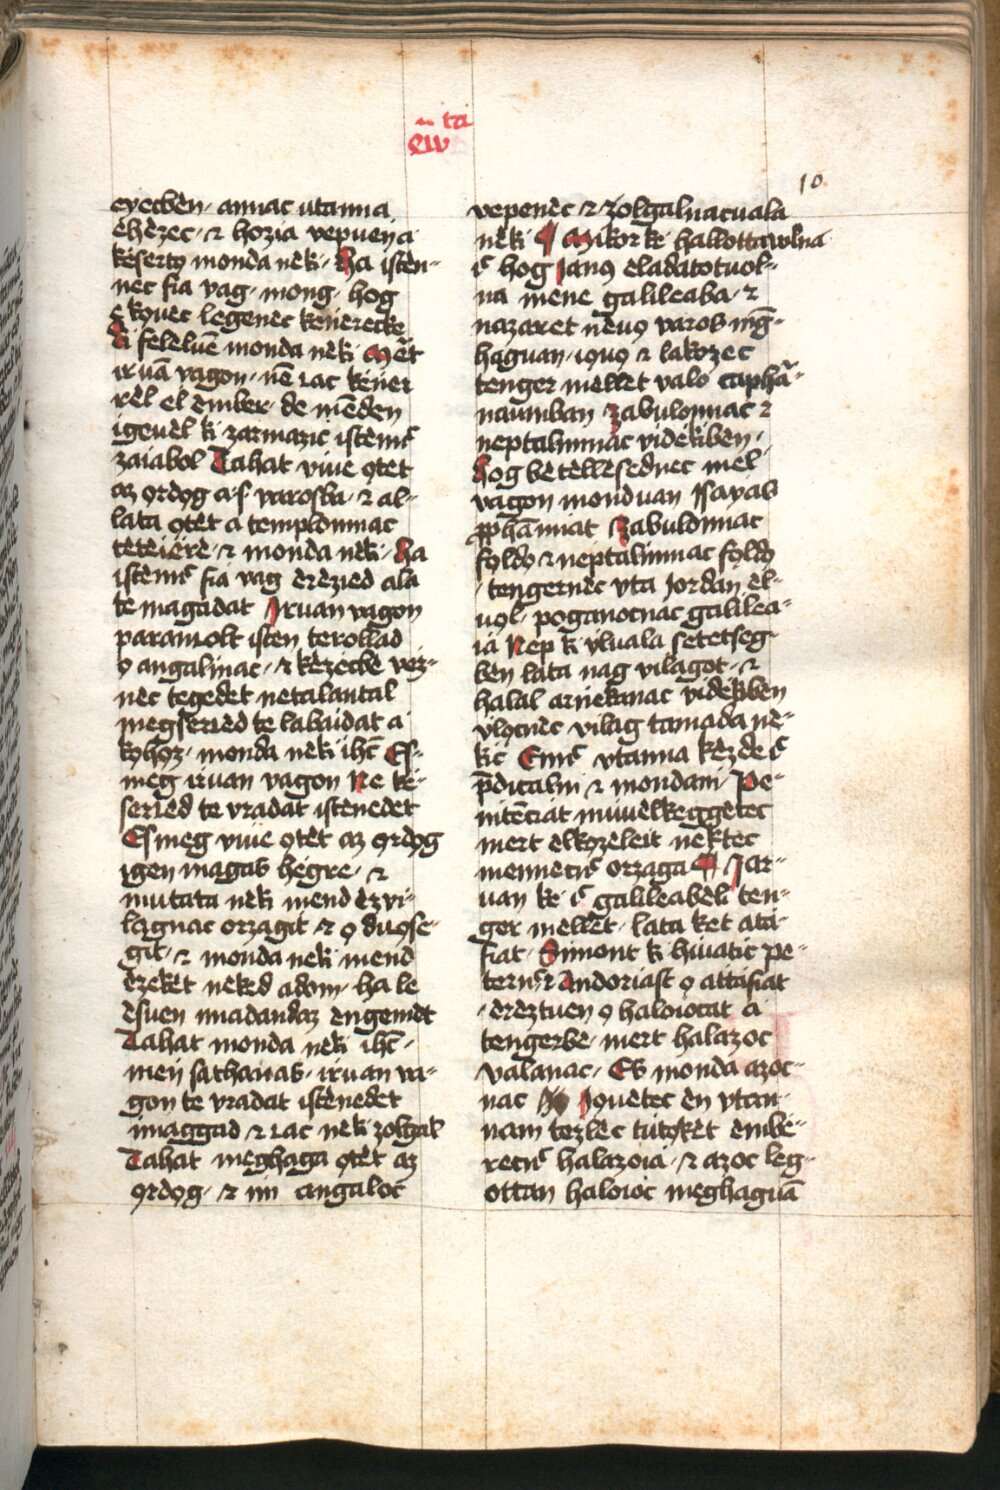 ēw̄ ta
10
eyecbèn· annac utanna
èhèzec· ⁊ hozia vepuen a
kèserto monda nèki· Ha isten-
nec fia vag· mong· hog
è kouec legenec kènerecke
Ki felèluē monda nèki· Mèt
irvā vagon· nē èac kèner
rèl èl èmber· de mēden
igeuèl ki zarmazic istèniᷤ
zaiabol Tahat viue ọtèt
az ọrdog a ſ· varosba· ⁊ al-
lata ọtèt a templomnac
tèteiére· ⁊ monda nèki· Ha
istèniᷤ fia vag èrèzied ala
te magadat Irvan vagon
parančolt isten terollad
ọ angalinac· ⁊ kèzecbè vèz-
nèc tegedet netalantal
megſerièd te labaidat a
kohoz· monda nèki ihc̄ Eſ-
meg irvan vagon Ne ke-
serièd te vradat istènedèt
Esmeg viue ọtèt az ọrdog
igen magas hègre· ⁊
mutata nèki mend èz vi-
lagnac orzagit ⁊ ọ duọse-
git· ⁊ monda nèki mend
èzekèt nèked adom· ha le
èsuen imadandaz èngemèt
Tahat monda nèki ihc̄·
mēij sathanas· irvan va-
gon te vradat istènedèt
imaggad ⁊ èac nèki zolgal
Tahat meghaga ọtèt az
ọrdog· ⁊ im angaloc
vepenèc ⁊ zolgalnacuala
nèki ¶ Mikor kè hallottauolna
ic̄ hog Janọs èladatotuol-
na mene galileaba· ⁊
nazaret nèuọ varost mḡ-
haguan· iọuọ ⁊ lakozec
tenger mellèt valo caphā-
naumban zabulonnac ⁊
neptalimnac vidèkiben·
Hog bètèllèſednec mèl
vagon monduan Isayas
ꝓphanniat Zabulonnac
foldọ ⁊ neptalimnac foldọ
tengernèc vta Jordan èl-
uọl· poganocnac galilea-
ia Nep ki vluala setetseg-
bèn lata nag vilagot· ⁊
halal arnekanac vidèkibèn
vlọcnèc vilag tamada nè-
kic Enniᷤ vtanna kèzde ic̄
p̄dicalni ⁊ mondani Pe-
nitēciat miuèlkeggètec
mert èlkozeleit nèktec
mennecnᷤ orzaga ¶ Jar-
uan kè ic̄ galileabeli ten-
ger mellèt· lata kèt ata-
fiat· Simont ki hiuatic pe-
terniᷤ ⁊ Andoriast ọ attafiat
èrèztuen ọ haloiocat a
tengerbe· mert halazoc
valanac· Es monda azoc-
nac Iọuètec èn vtan-
nam tezlec tutọkèt èmbè-
recniᷤ halazoia· ⁊ azoc leg-
ottan haloioc meghaguā